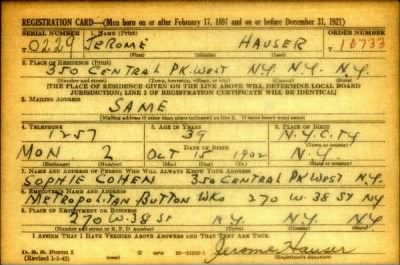 REGISTRATION CARD—(Men born on or after February 17, 1897 and on or before December 31, 1921)
SERIAL NUMBER 1. NAME (Print) ORDER NUMBER
T 0229 JEROME HAUSER 10733
(First) (Middle) (Last)
2. PLACE OF RESIDENCE (Print)
350 CENTRAL PK. WEST N.Y. N.Y. N.Y.
[THE PLACE OF RESIDENCE GIVEN ON THE LINE ABOVE WILL DETERMINE LOCAL BOARD
JURISDICTION; LINE 2 OF REGISTRATION CERTIFICATE WILL BE IDENTICAL]
3. MAILING ADDRESS
SAME
[Mailing address if other than place indicated on line 2. If same insert word same]
4. TELEPHONE 5. AGE IN YEARS 6. PLACE OF BIRTH
1257 39 N.Y. CITY
DATE OF BIRTH
MON 2 OCT 15 1902 N.Y.
(Exchange) (Number) (Mo.) (Day) (Yr.) (State or country)
7. NAME AND ADDRESS OF PERSON WHO WILL ALWAYS KNOW YOUR ADDRESS
SOPHIE COHEN 350 CENTRAL PK WEST N.Y.
8. EMPLOYER'S NAME AND ADDRESS
METROPOLITAN BUTTON WKS 270 W. 38 ST NY
9. PLACE OF EMPLOYMENT OR BUSINESS
270 W. 38 ST N.Y. N.Y.
(Number and street or R. F. D. number) (Town) (County) (State)
I AFFIRM THAT I HAVE VERIFIED ABOVE ANSWERS AND THAT THEY ARE TRUE.
D. S. S. Form 1
Jerome Hauser
(Registrant's signature)